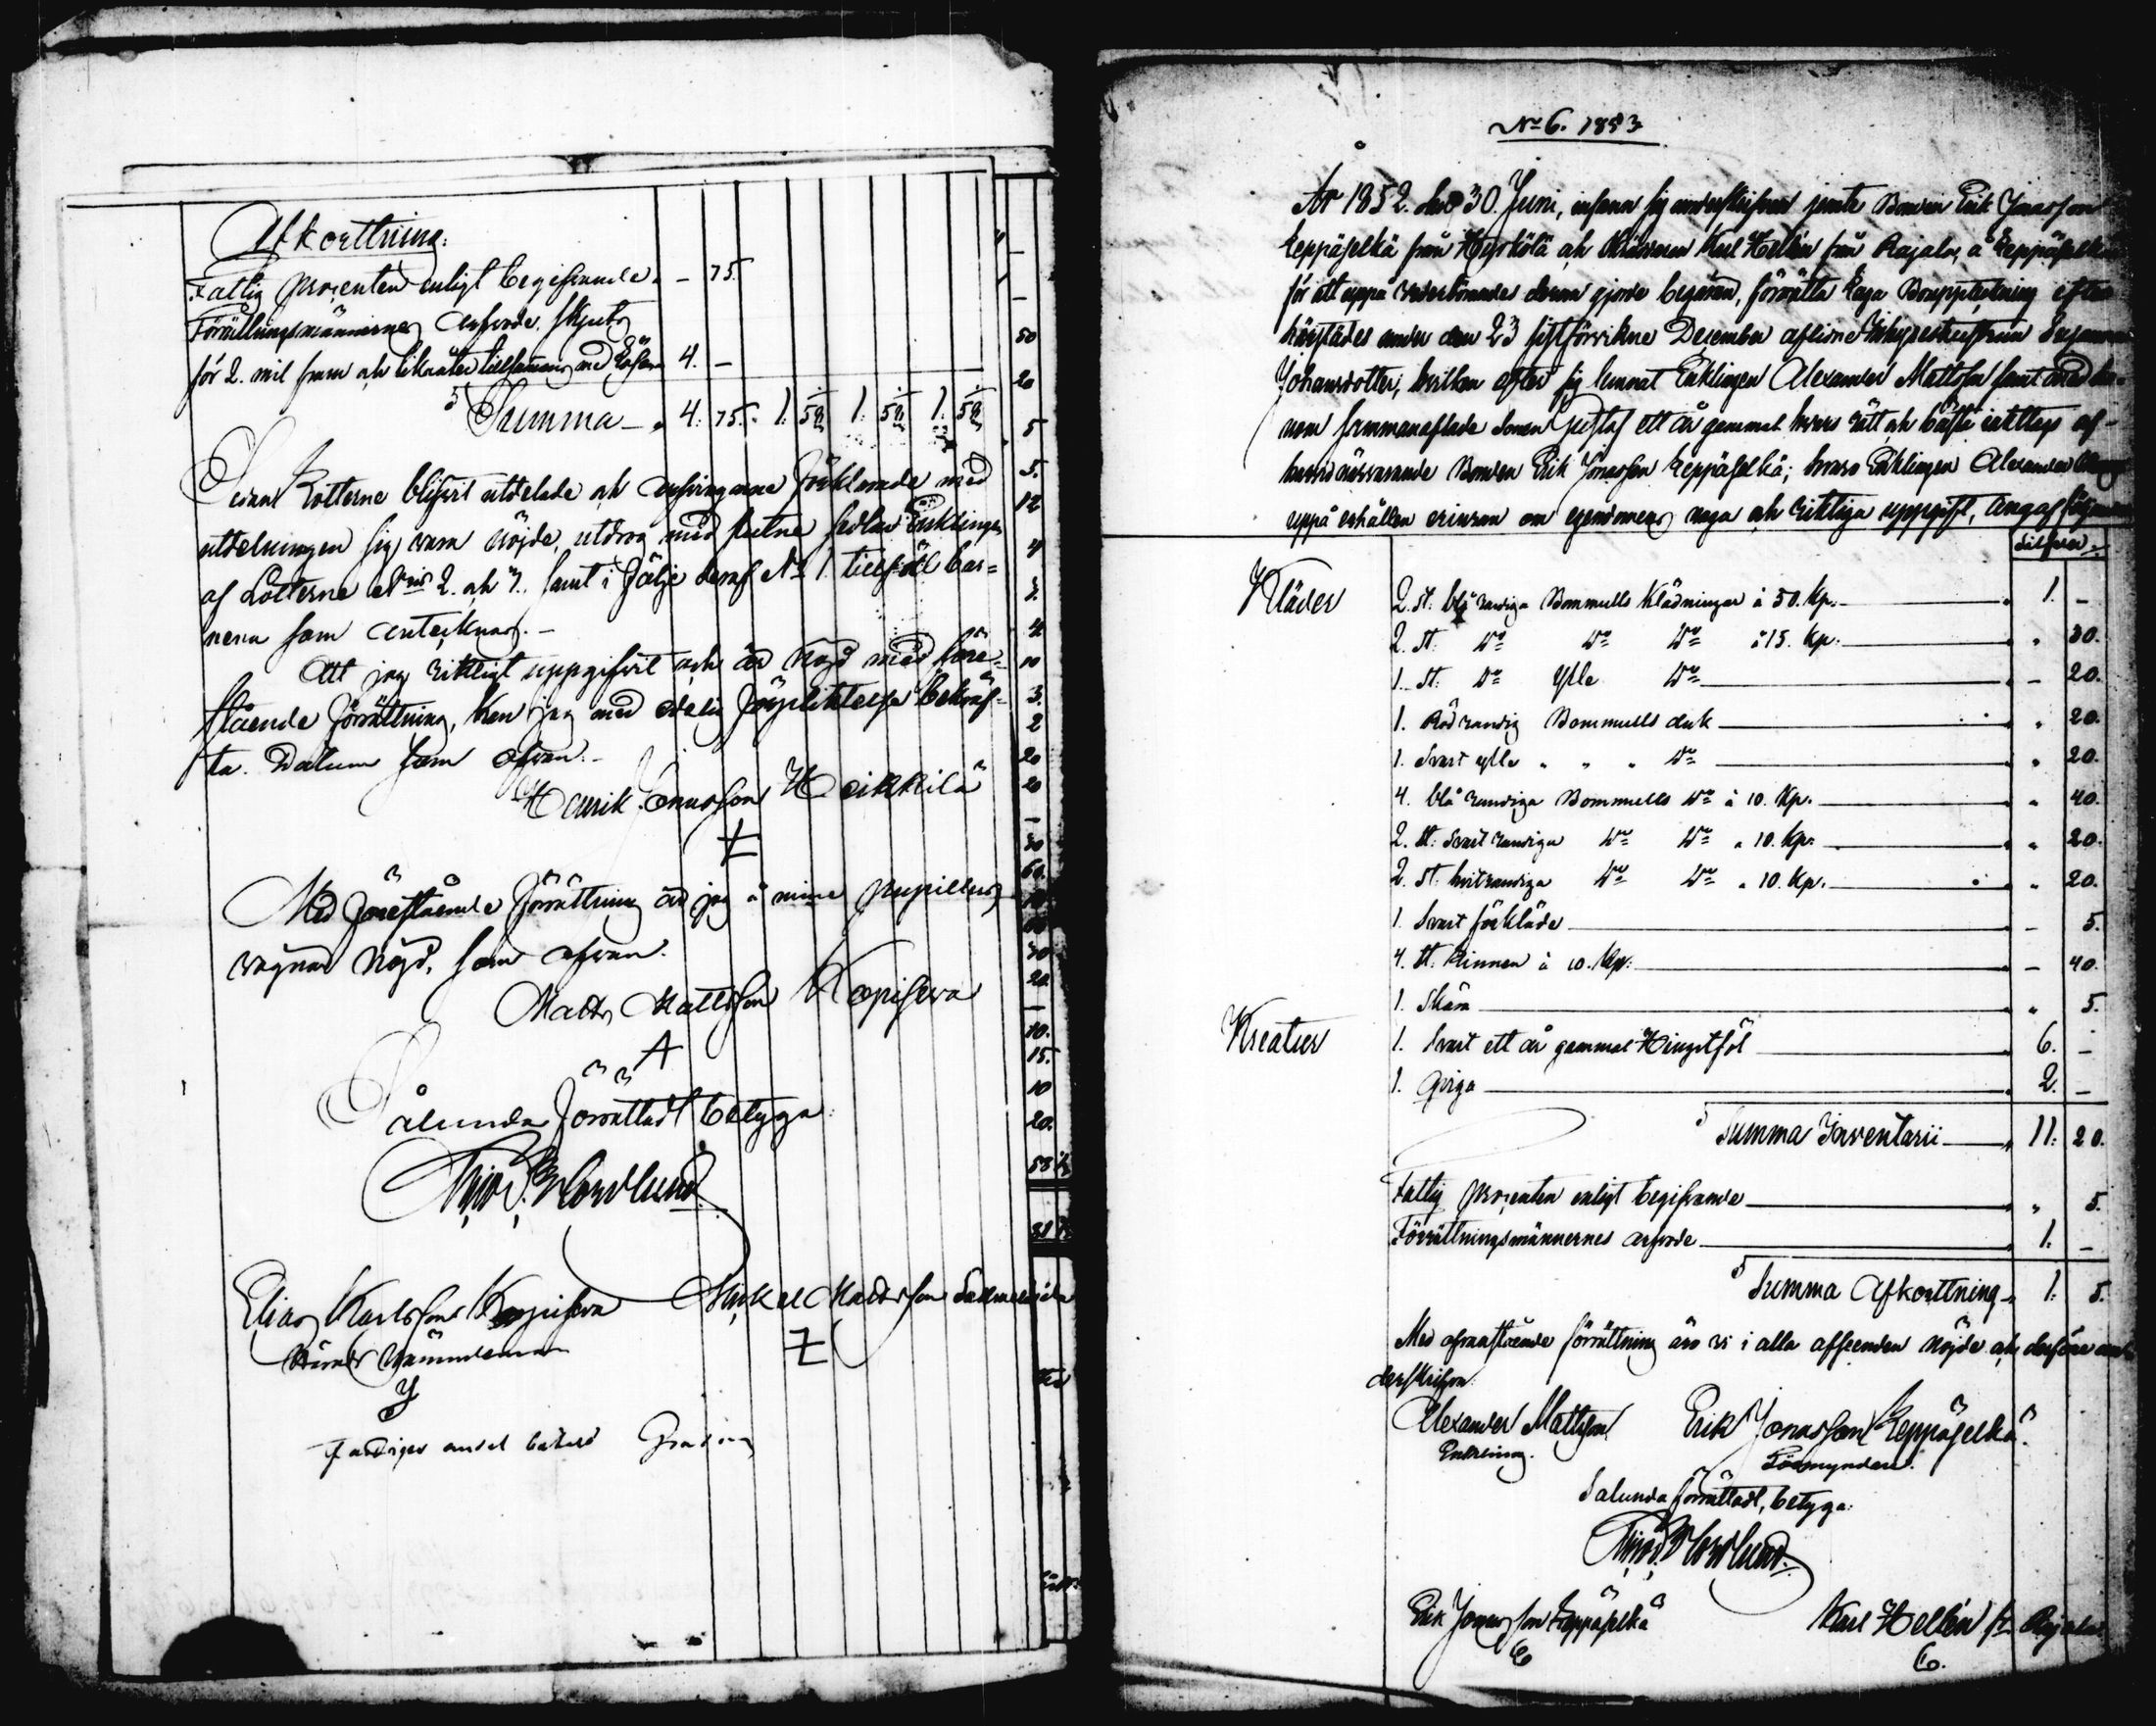 Afkorttning:
Fattig procenten enligt begifvande. - 75.
Förrättningsmännernes arfvode, skjuts
för 2. mil fram och tillsammans med 4. -
Summa - 4. 75. 1. 58 1. 58 1. 58
Sedan Lotterne blifvit utdelade och arfvingarne förklarade med
utdelningen sig vara nöjde, utdrog med slutne sedlar Enklingen
af Lotterne N:ris 2. och 3. samt i följe deraf N:o 1. tillföll bar=
nen som antecknas. -
Att jag riktigt uppgifvit och är nöjd med före=
stående förrättning, kan jag med edelig förpliktelse bekräf=
ta. Datum som ofvan. -
Henrik Jonasson Heikkilä
Med förestående förrättning är jag å mine pupillers
vägnar nöjd, som ofvan.
Matts Mattsson Kopiseva
Sålunda förrättadt betyga:
Nordlund
Elias Karlsson Kopiseva Mickel Mattsson
Härads Nämndeman
Fattiges andel
No 6. 1853
År 1852. den 30. Juni, infann sig undertecknad jemte Bonden Erik Jonasson
Leppäselkä från och Karl Hellén från Rajala, å Leppäselkä
för att uppå vederbörandes derom gjorde begäran, förrätta Laga Bouppteckning efter
härstädes under den 23 sistförvikne December aflidne Inhyseshustrun Susanna
Johansdotter, hvilken efter sig lemnat Enklingen Alexander Mattsson samt med
nom sammanaflade Sonen Gustaf ett år gammal hvars rätt och bästa iakttogs af
härvid närvarande Bonden Erik Jonasson Leppäselkä; hvaro Enklingen Alexander
uppå erhållen erinran om egendomens noga och riktiga uppgift, angaf
Silfver.
Kläder 2. St: blå randiga Bommulls Klädningar à 50. Kp. 1. -
2. St. D:o D:o D:o à 15. Kp. " 30.
1. St. D:o Ylle D:o - 20.
1. Röd randig Bommulls duk " 20.
1. Svart ylle " " " D:o " 20.
4. blå randiga Bommulls D:o à 10. Kp. " 40.
2. St: Svart randiga D:o D:o " 10. Kp. " 20.
2. St. hvitrandiga D:o D:o " 10. Kp. " 20.
1. Svart förkläde - 5.
4. St. Linnen à 10. Kp. - 40.
1. Skära " 5.
Kreatur 1. Svart ett år gammal Hingstföl 6. -
1. Qviga 2. -
Summa Inventarii 11. 20.
Fattig procenten enligt begifvande " 5.
Förrättningsmännernes arfvode 1. -
Summa Afkorttning 1. 5.
Med ofvanstående förrättning äro vi i alla afseenden nöjde och derföre un
derskrifva:
Alexander Mattsson Erik Jonasson Leppäselkä.
Enkling. Förmyndare.
Sålunda förrättadt, betyga:
Nordlund
Erik Jonasson Leppäselkä Karl Hellén fr. Rajala